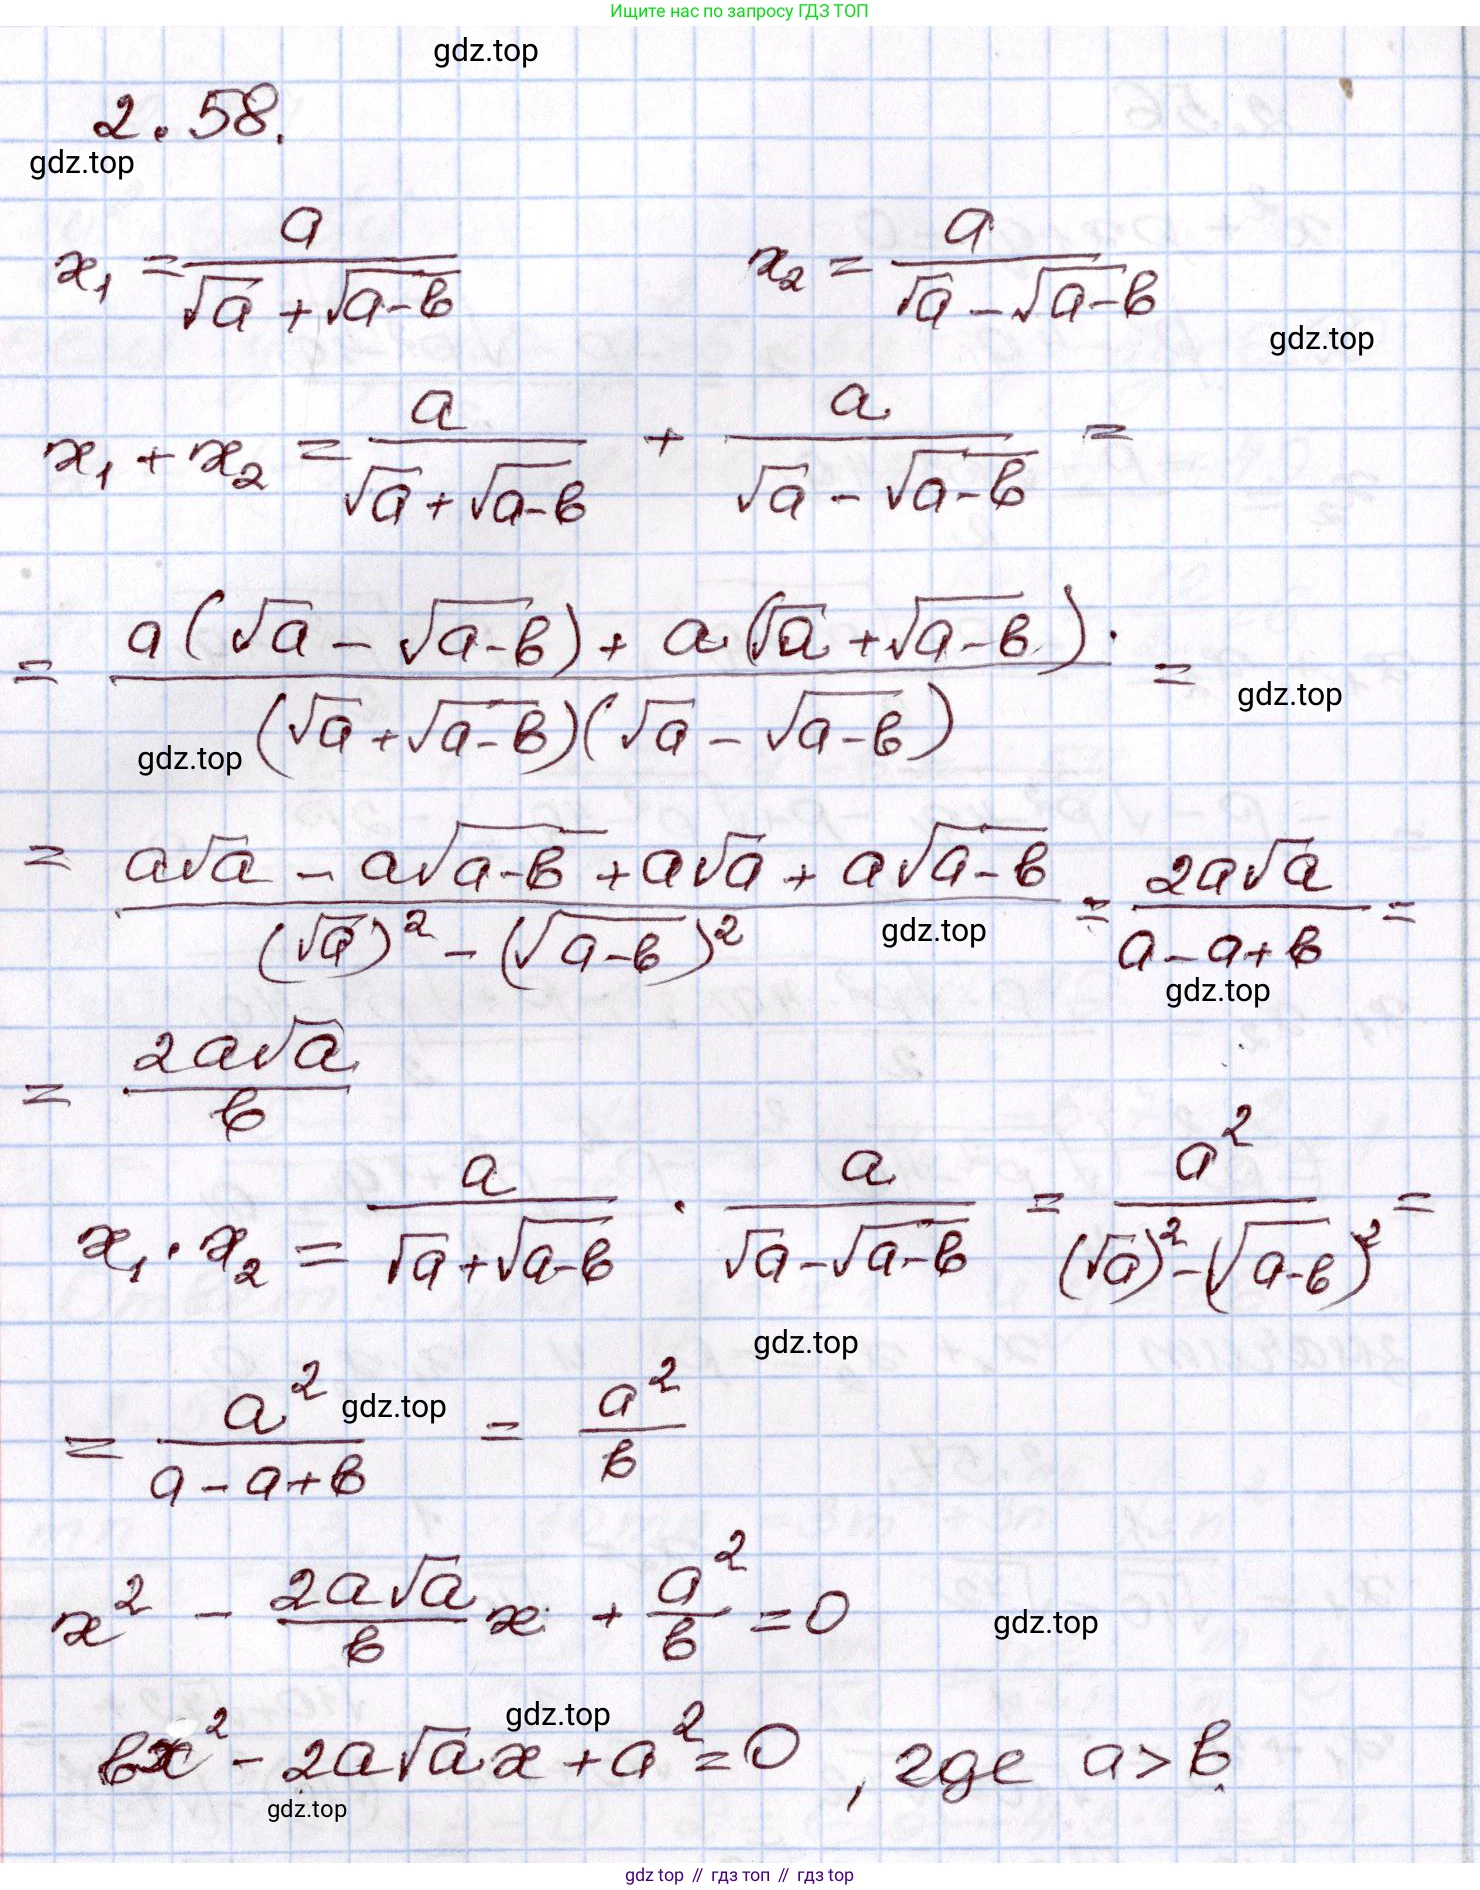 Ищите нас по запросу ГДЗ ТОП
gdz.top
2.58.
gdz.top
x₁ = a/(√a + √(a-в)) x₂ = a/(√a - √(a-в))
gdz.top
x₁ + x₂ = a/(√a + √(a-в)) + a/(√a - √(a-в)) =
= (a(√a - √(a-в)) + a(√a + √(a-в)))/((√a + √(a-в))(√a - √(a-в))) =
gdz.top
gdz.top
= (a√a - a√(a-в) + a√a + a√(a-в))/((√a)² - (√(a-в))²) = 2a√a/(a-a+в) =
gdz.top
gdz.top
= 2a√a/в
x₁ · x₂ = a/(√a + √(a-в)) · a/(√a - √(a-в)) = a²/((√a)² - (√(a-в))²) =
gdz.top
= a²/(a-a+в) = a²/в
gdz.top
x² - 2a√a/в x + a²/в = 0
gdz.top
gdz.top
вx² - 2a√a x + a² = 0, где a > в.
gdz.top
gdz top // гдз топ // гдз top